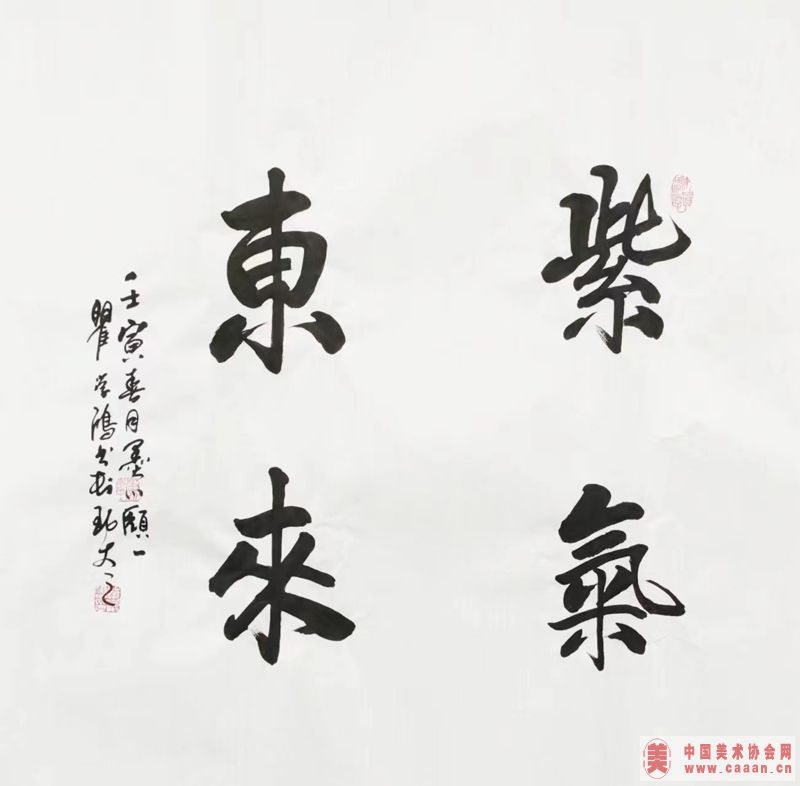 紫氣
東來
壬寅春月墨
瞿学鴻书於
中国美术协会网
www.caaan.cn